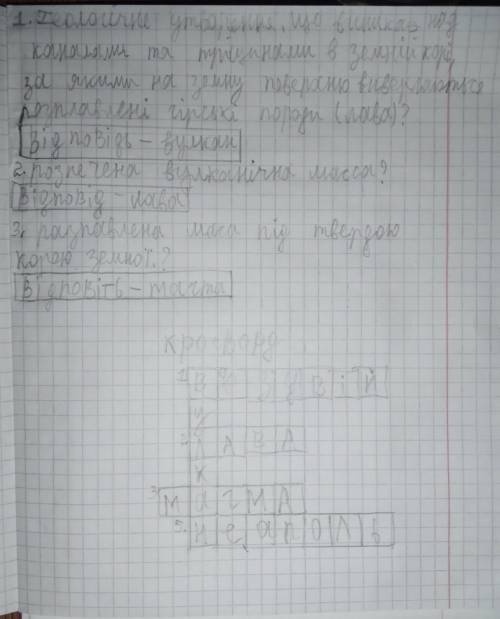 1. Геологічне утворення, що виникає над
каналами та тріщинами в земній корі
за якими на земну поверхню вивергаються
розплавлені гірські породи (лава)?
Відповідь - вулкан
2. розпечена вулканічна масса?
Відповід - лава
3. разплавлена маса під твердою
корою земної?
Відповіть - магма
кросворд
1. В Е З У В І Й
У
2. Л А В А
К
3. М а г М А
5. Н е а п о л ь